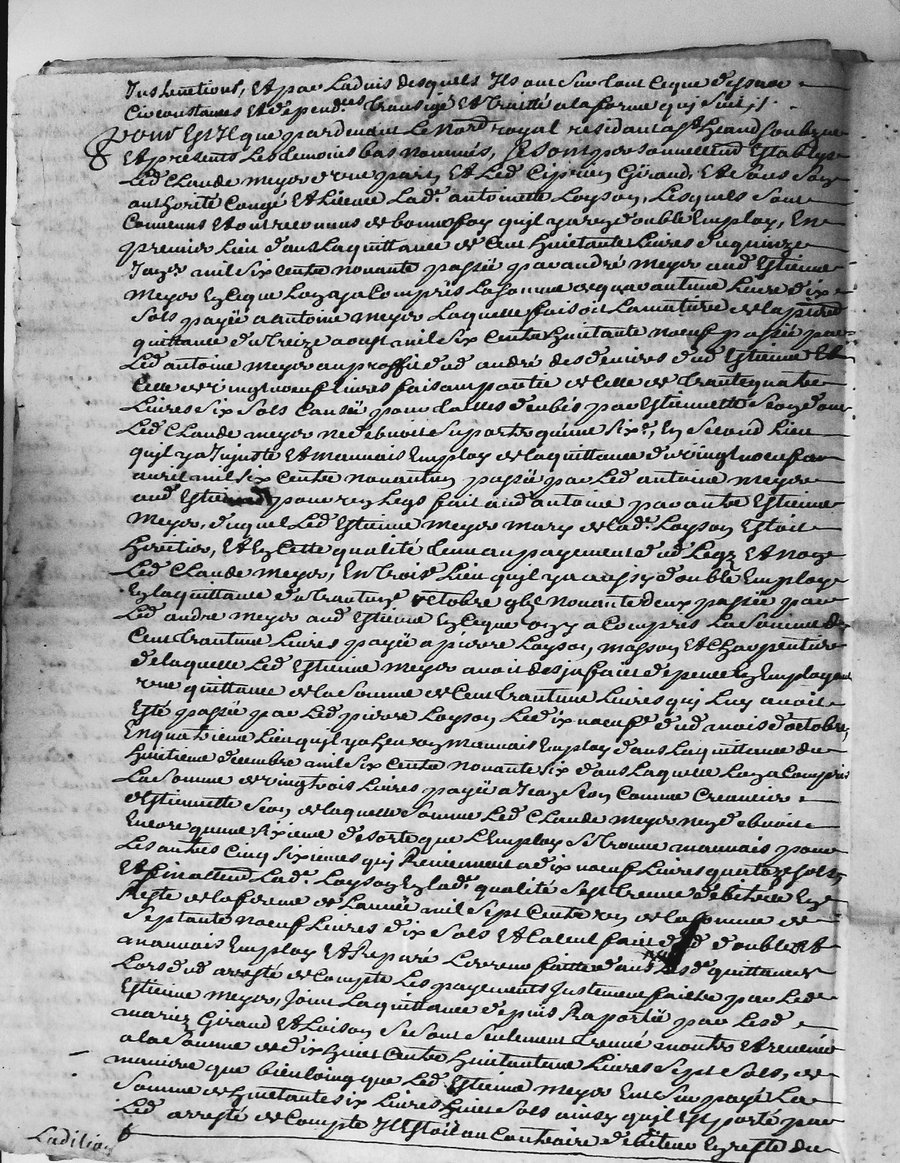 Instructions, Et par Ladvis desquels Ils ont Sur tout ceque dessus
Circonstances Et dependces transigé Et traitté a la forme quj Suit /.
Pour Est Il que pardevant Le Nore royal residant a St
Et presents Les temoins bas nommés, Se Sont personnellemt Establys
Led Claude meyer d'une part, Et Led Ciprien Giraud, Et Sous Son
authorité Congé Et Licence Lad. antoinette Loyson, Lesquels Sont
Convenus Et ont reconnus de bonne foy quil y a eu double Employ, En
premier Lieu dans La quittance de Cent huictante Livres du quinze
mil Six Cents Nonante passée par andré Meyer aud Estienne
Meyer En Ceque Lon y a Compris La Somme de quarantune Livre dix
Sols payée a antoine Meyer Laquelle faisoit La matiere de la
quittance du treize aoust mil Six Cents huictante neuf passée par
Led antoine meyer au proffit dud andré des deniers dud Estienne Et
Celle de vingt neuf Livres faisant partie de Celle de trantequatre
Livres Six Sols Causée pour tailles deubës par Estiennette Seon dont
Led Claude meyer ne debvoit Suporter qu'une Sixe, En Second Lieu
quil y a Injuste Et mauvais Employ de la quittance du vingt neuf
avril mil Six Cents Nonantun passée par Led antoine meyer
aud Estienne pour un Legs fait aud antoine par autre Estienne
Meyer, duquel Led Estienne Meyer mary de Lad. Loyson Estoit
heritier, Et En Cette qualité tenu au payement dud Legz Et non
Led Claude Meyer, En trois.e Lieu quil y a aussy double Employ
En la quittance du trantun octobre Nonante deux passée par
Led andre meyer aud Estienne En Ceque on y a Compris La Somme de
Cent trantune Livres payée a pierre Loyson masson Et Charpentier
de laquelle Led Estienne Meyer avoit desja fait depence En Employant
une quittance de la Somme de Cent trantune Livres quj Luy avoit
Esté passée par Led pierre Loyson Le dix neuf dud mois d'octobre,
En quatrieme Lieu quil y a heu un mauvais Employ dans La quittance du
huitieme decembre mil Six Cents Nonante Six dans Laquelle Lon a Compris
La Somme de vingt trois Livres payée a Jean Seon Comme Creancier
d'Estiennette Seon de laquelle Somme Led Claude Meyer n'en debvoit
Encore qu'une Sixieme de sorte que L'Employ Se trouve mauvais pour
Les autres Cinq Sixiemes quj Reviennent a dix neuf Livres quatre Sols,
Et finallemt Lad. Loyson En lad. qualité S'est trouvée débitrice En
Reste de la ferme de L'année mil Sept Cents un de la Somme de
Septante neuf Livres dix Sols Et Calcul fait dud double Et
mauvais Employ Et Reparé Lerreur faitte dans lesd. quittances
Lors dud arresté de Compte Les payements Justement faitz par Led
Estienne Meyer, Joint La quittance depuis Raportée par Lesd
mariez Giraud Et Loison Se Sont Seulement treuvé monter Et revenir
a la Somme de dix huict Cents huictantune Livres Sept Sols, de
maniere que bien Loing que Led Estienne meyer Eut Surpayé La
Somme de huictante six Livres huict Sols ainsy quil Est porté par
Led arresté de Compte Il Estoit au Contraire débiteur En reste du